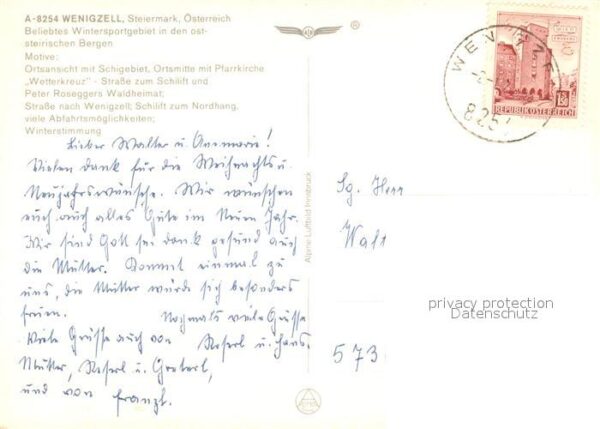 A-8254 WENIGZELL, Steiermark, Österreich
Beliebtes Wintersportgebiet in den ost-
steirischen Bergen
Motive:
Ortsansicht mit Schigebiet, Ortsmitte mit Pfarrkirche
„Wetterkreuz" - Straße zum Schilift und
Peter Roseggers Waldheimat;
Straße nach Wenigzell; Schilift zum Nordhang,
viele Abfahrtsmöglichkeiten;
Winterstimmung
Lieber Walter u. Annemarie!
Vielen dank für die Weihnachts u.
Neujahrswünsche. Wir wünschen
euch auch alles Gute im Neuen Jahr.
Wir sind Gott sei dank gesund auch
die Mutter. Kommet einmal zu
uns, die Mutter würde sich besonders
freuen. Nochmals viele Grüsse
Viele Grüsse auch von Reserl u. Hans.
Mutter, Reserl u. Greterl,
und von Franzl.
Alpine Luftbild Innsbruck
®
WENIGZELL
8254
REPUBLIK ÖSTERREICH
Sg. Herr
Walt
573
privacy protection
Datenschutz